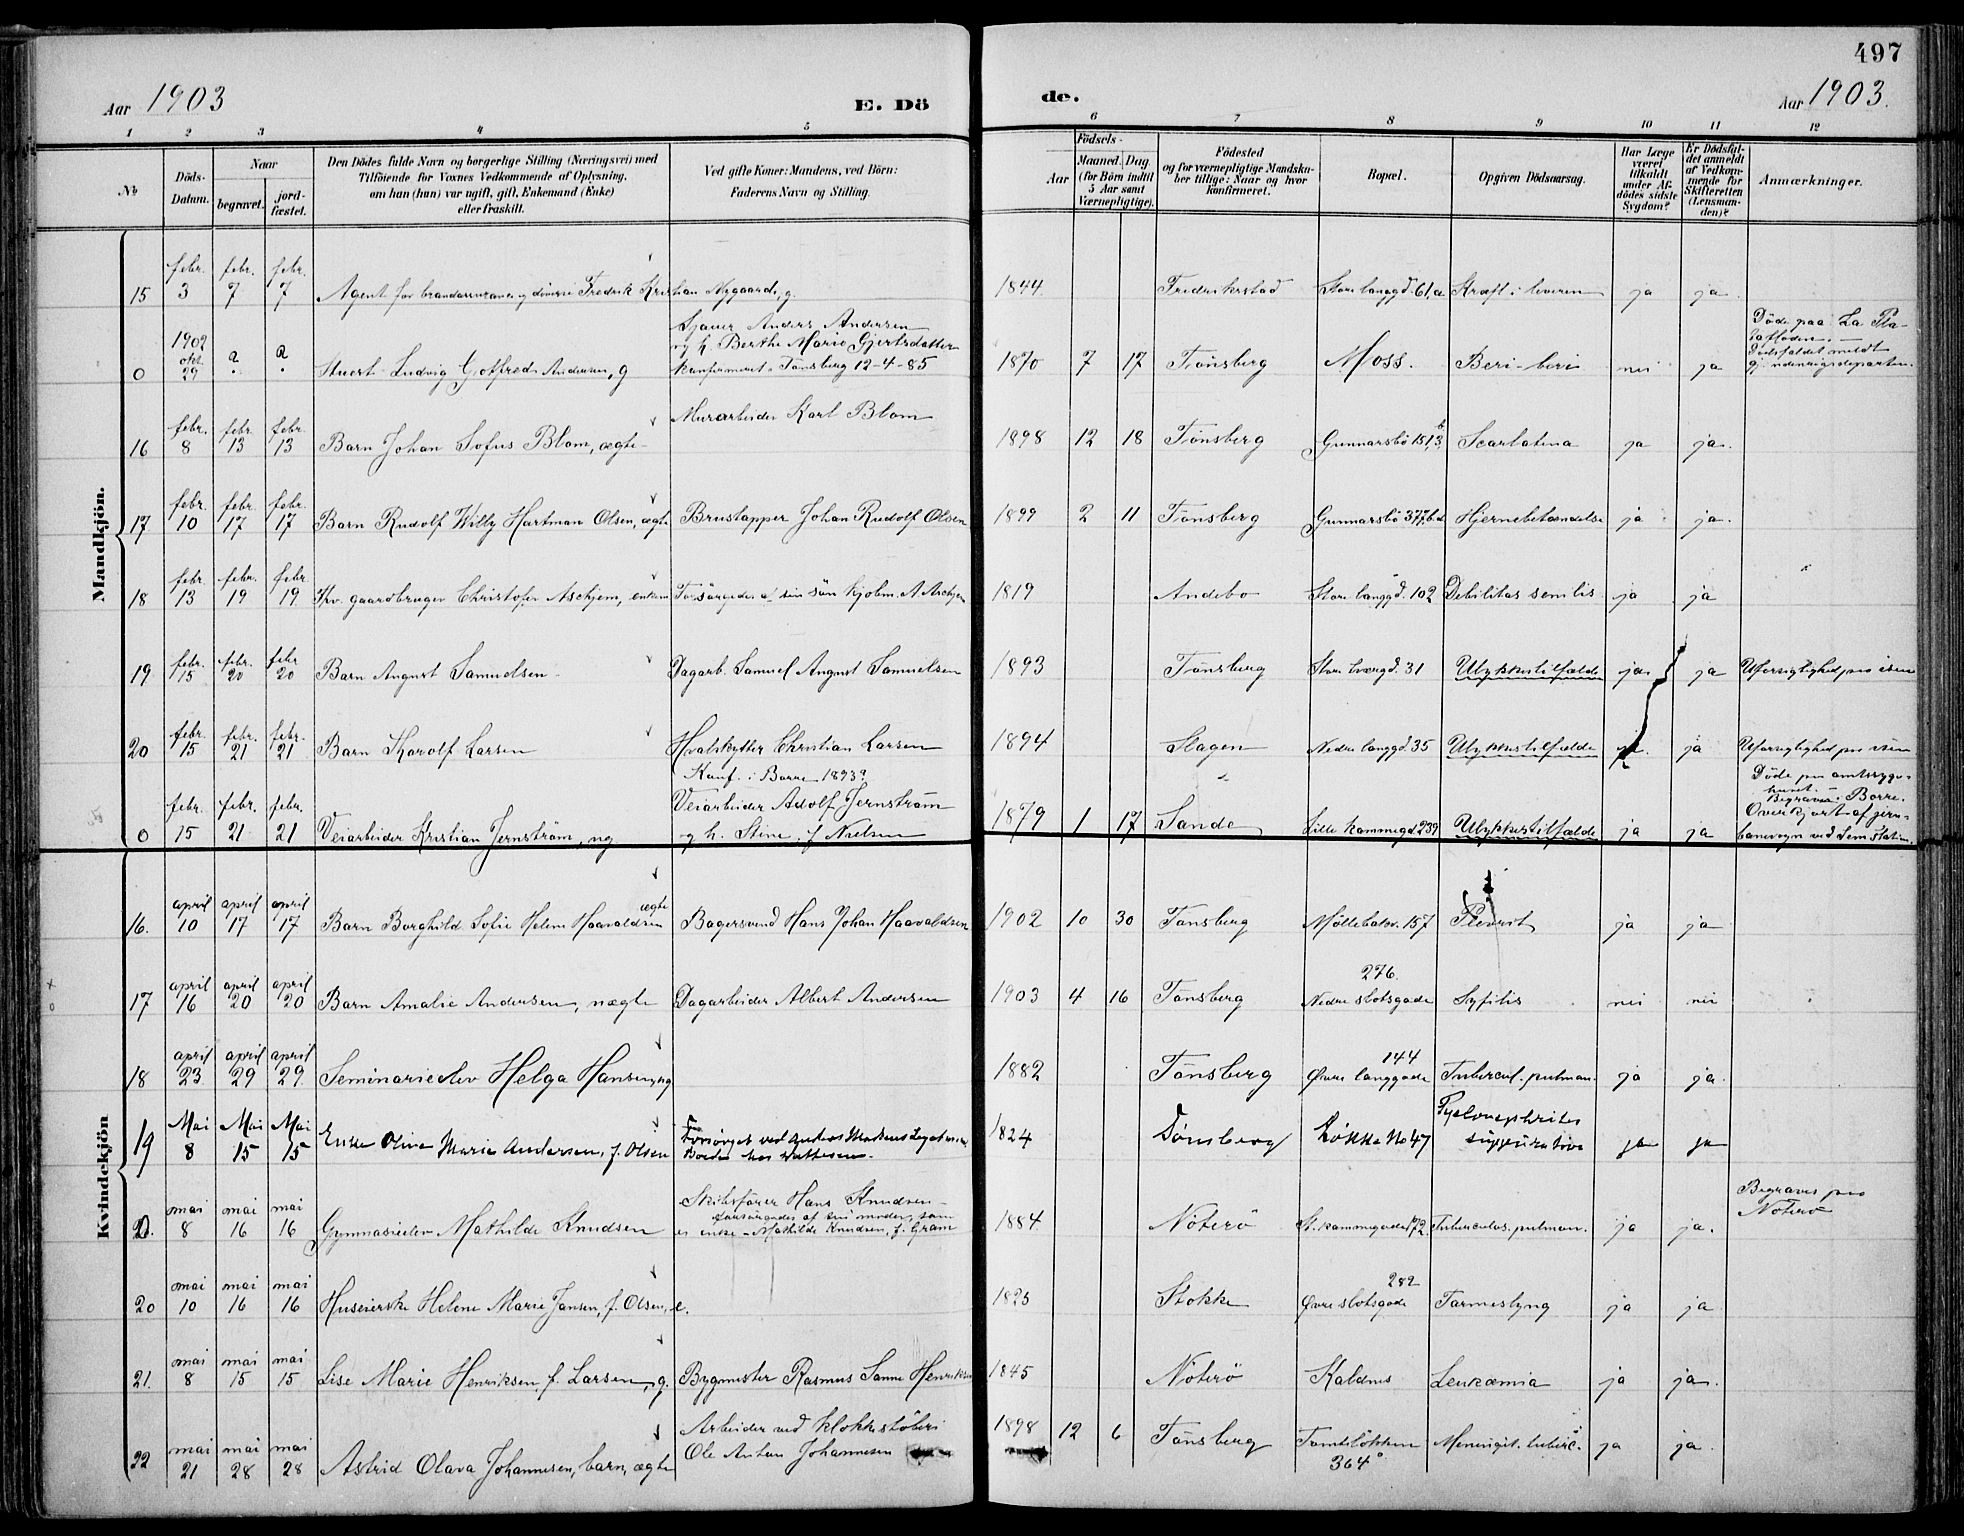 497
Aar 1903
E. Dö
de.
Aar 1903.
1 2 3 4 5 6 7 8 9 10 11 12
No
Döds-Datum.
Naar
begravet.
jord-fæstet.
Den Dödes fulde Navn og borgerlige Stilling (Næringsvei) med
Tilföiende for Voxnes Vedkommende af Oplysning,
om han (hun) var ugift, gift, Enkemand (Enke)
eller fraskilt.
Ved gifte Koner: Mandens, ved Börn:
Faderens Navn og Stilling.
Födsels-
Aar
Maaned. Dag.
(for Börn indtil
5 Aar samt
Værnepligtige).
Födested
og for værnepligtige Mandska-
ber tillige: Naar og hvor
konfirmeret.
Bopæl.
Opgiven Dödsaarsag.
Har Læge
været
tilkaldt
under Af-
dödes sidste
Sygdom?
Er Dödsfal-
det anmeldt
af Vedkom-
mende for
Skifteretten
(Lensman-
den)?
Anmærkninger.
Mandkjön.
15 febr. 3 febr. 7 febr. 7 Agent for brandassurance og diverse Fredrik Kristian Nygaard, g. 1844 Fredrikstad Store langgd. 61,a Kræft i leveren ja ja
0 1902 okt. 29 a a Stuert Ludvig Gotfred Andersen, g
Sjauer Anders Andersen
og h. Berthe Marie Gjertsdatter
konfirmeret i Tønsberg 12-4-85
1870 7 17 Tønsberg Moss. Beri-beri nei ja
Døde paa La Pla-
tafloden. -
Dödsfaldet meldt
gj. udenrigsdeparten.
16 febr. 8 febr. 13 febr. 13 Barn Johan Sofus Blom, ægte Murarbeider Karl Blom 1898 12 18 Tønsberg Gunnarsbö 151,3 b Scarlatina ja ja.
17 febr. 10 febr. 17 febr. 17 Barn Rudolf Willy Hartman Olsen, ægte Brustapper Johan Rudolf Olsen 1899 2 11 Tønsberg Gunnarsbö 377, Hjernebetændelse ja ja.
18 febr. 13 febr. 19 febr. 19 Fhv. gaardbruger Christofer Aschjem, enkem Forsörgedes af sin sön kjøbm. A Aschjem 1819 Andebo Store langgd. 102 Debilitas senilis ja ja
19 febr. 15 febr. 20 febr 20 Barn August Samuelsen Dagarb. Samuel August Samuelsen 1893 Tønsberg Store tværgd. 31 Ulykkestilfælde ja ja Uforsigtighed paa isen
20 febr. 15 febr. 21 febr. 21 Barn Tharolf Larsen Hvalskytter Christian Larsen 1894 Slagen Nedre langgd. 35 Ulykkestilfælde ja Uforsigtighed paa isen
0 febr. 15 febr. 21 febr. 21 Veiarbeider Kristian Jernström, ug
Konf. i Borre 1893?
Veiarbeider Adolf Jernström
og h. Stine f. Nielsen
1879 1 17 Sande Lille kammegd 239 Ulykkestilfælde ja ja
Døde paa amtssyge-
huset. -
Begraves i Borre.
Overkjørt af jern-
banevogn ved Sem Station.
Kvindekjön
16. april 10 april 17 april 17 Barn Borghild Sofie Helene Haavaldsen ægte Bagersvend Hans Johan Haavaldsen 1902 10 30 Tønsberg Möllebakv. 157 Plevrit ja ja
17 april 16 april 20 april 20 Barn Amalie Andersen, uægte Dagarbeider Albert Andersen 1903 4 16 Tønsberg 276. Nedre slotsgade Syfilis nei nei
18 april 23 april 29 april 29. Seminarieelev Helga Hansen, ug 1882 Tønsberg 144 Øvre langgade Tubercul. pulman. ja ja.
19 Mai 8 Mai 15 Mai 15 Enke Oline Marie Andersen, f. Olsen
Forsörget ved Anders Madsens Legat
1824 Tønsberg Løkke No 47 Pyelonephrites suppurativa ja ja
0. mai 8 mai 16 mai 16 Gymnasieelev Mathilde Knudsen
Skibsfører Hans Knudsen -
forsörgedes af sin moder, som
er enke - Mathilde Knudsen, f. Gram
1884 Nöterö St. kammegade 172. Tuberculos. pulman. ja ja. Begraves paa Nøterö
20 mai 10 mai 16 mai 16 Huseierske Helene Marie Jansen, f. Olsen, e. 1825 Stokke 282 Øvre slotsgade Tarmeslyng ja ja
21. mai 8 mai 15 mai 15 Lise Marie Henriksen, f. Larsen, g. Bygmester Rasmus Sanne Henriksen 1845 Nöterö Kaldnes Leukæmia ja ja.
22 mai 21 mai 28 mai 28 Astrid Olava Johannesen, barn, ægte
Arbeider ved klokkestöberi
Ole Anton Johannesen
1898 12 6 Tønsberg Tomteløkken 364 Meningit. tuberc. ja ja.